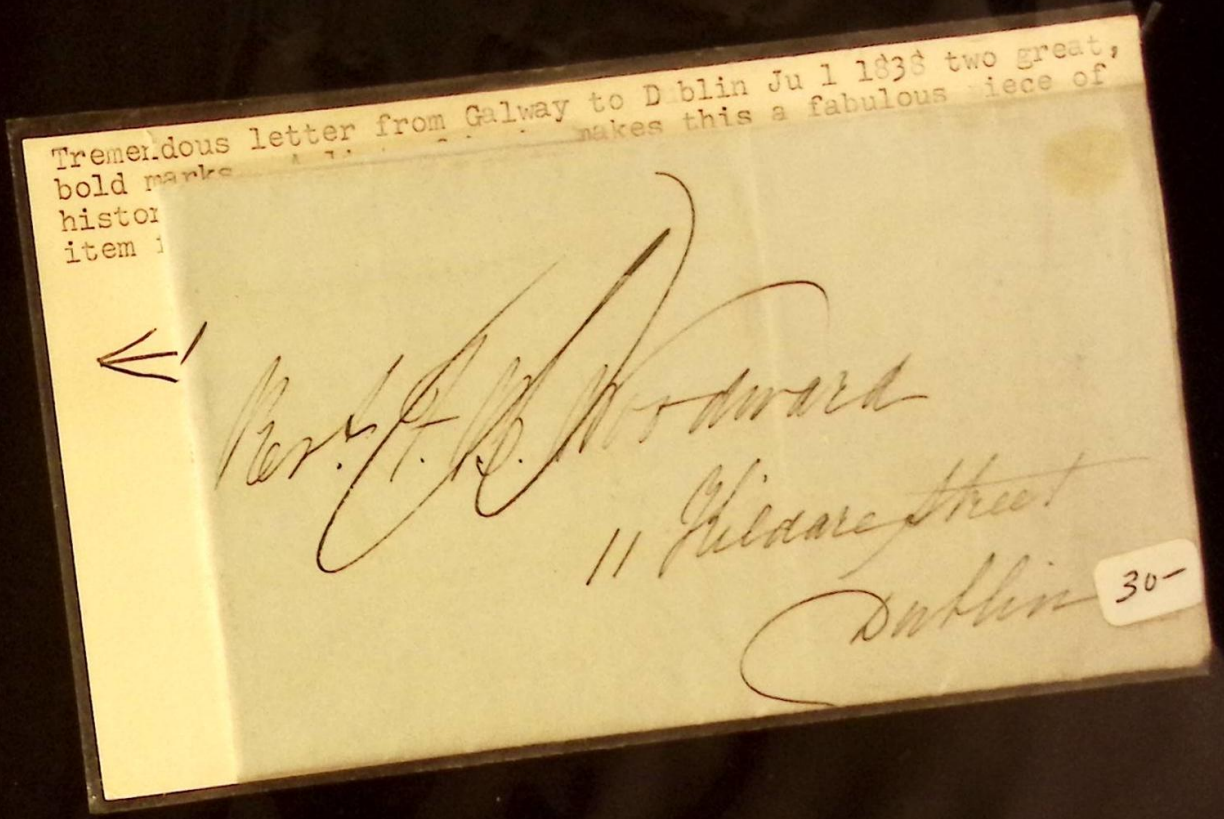 Tremendous letter from Galway to D blin Ju 1 1838 two great,
bold marks makes this a fabulous iece of
histor
item i
Revd. F. B. Woodward
11 Kildare Street
Dublin
30-